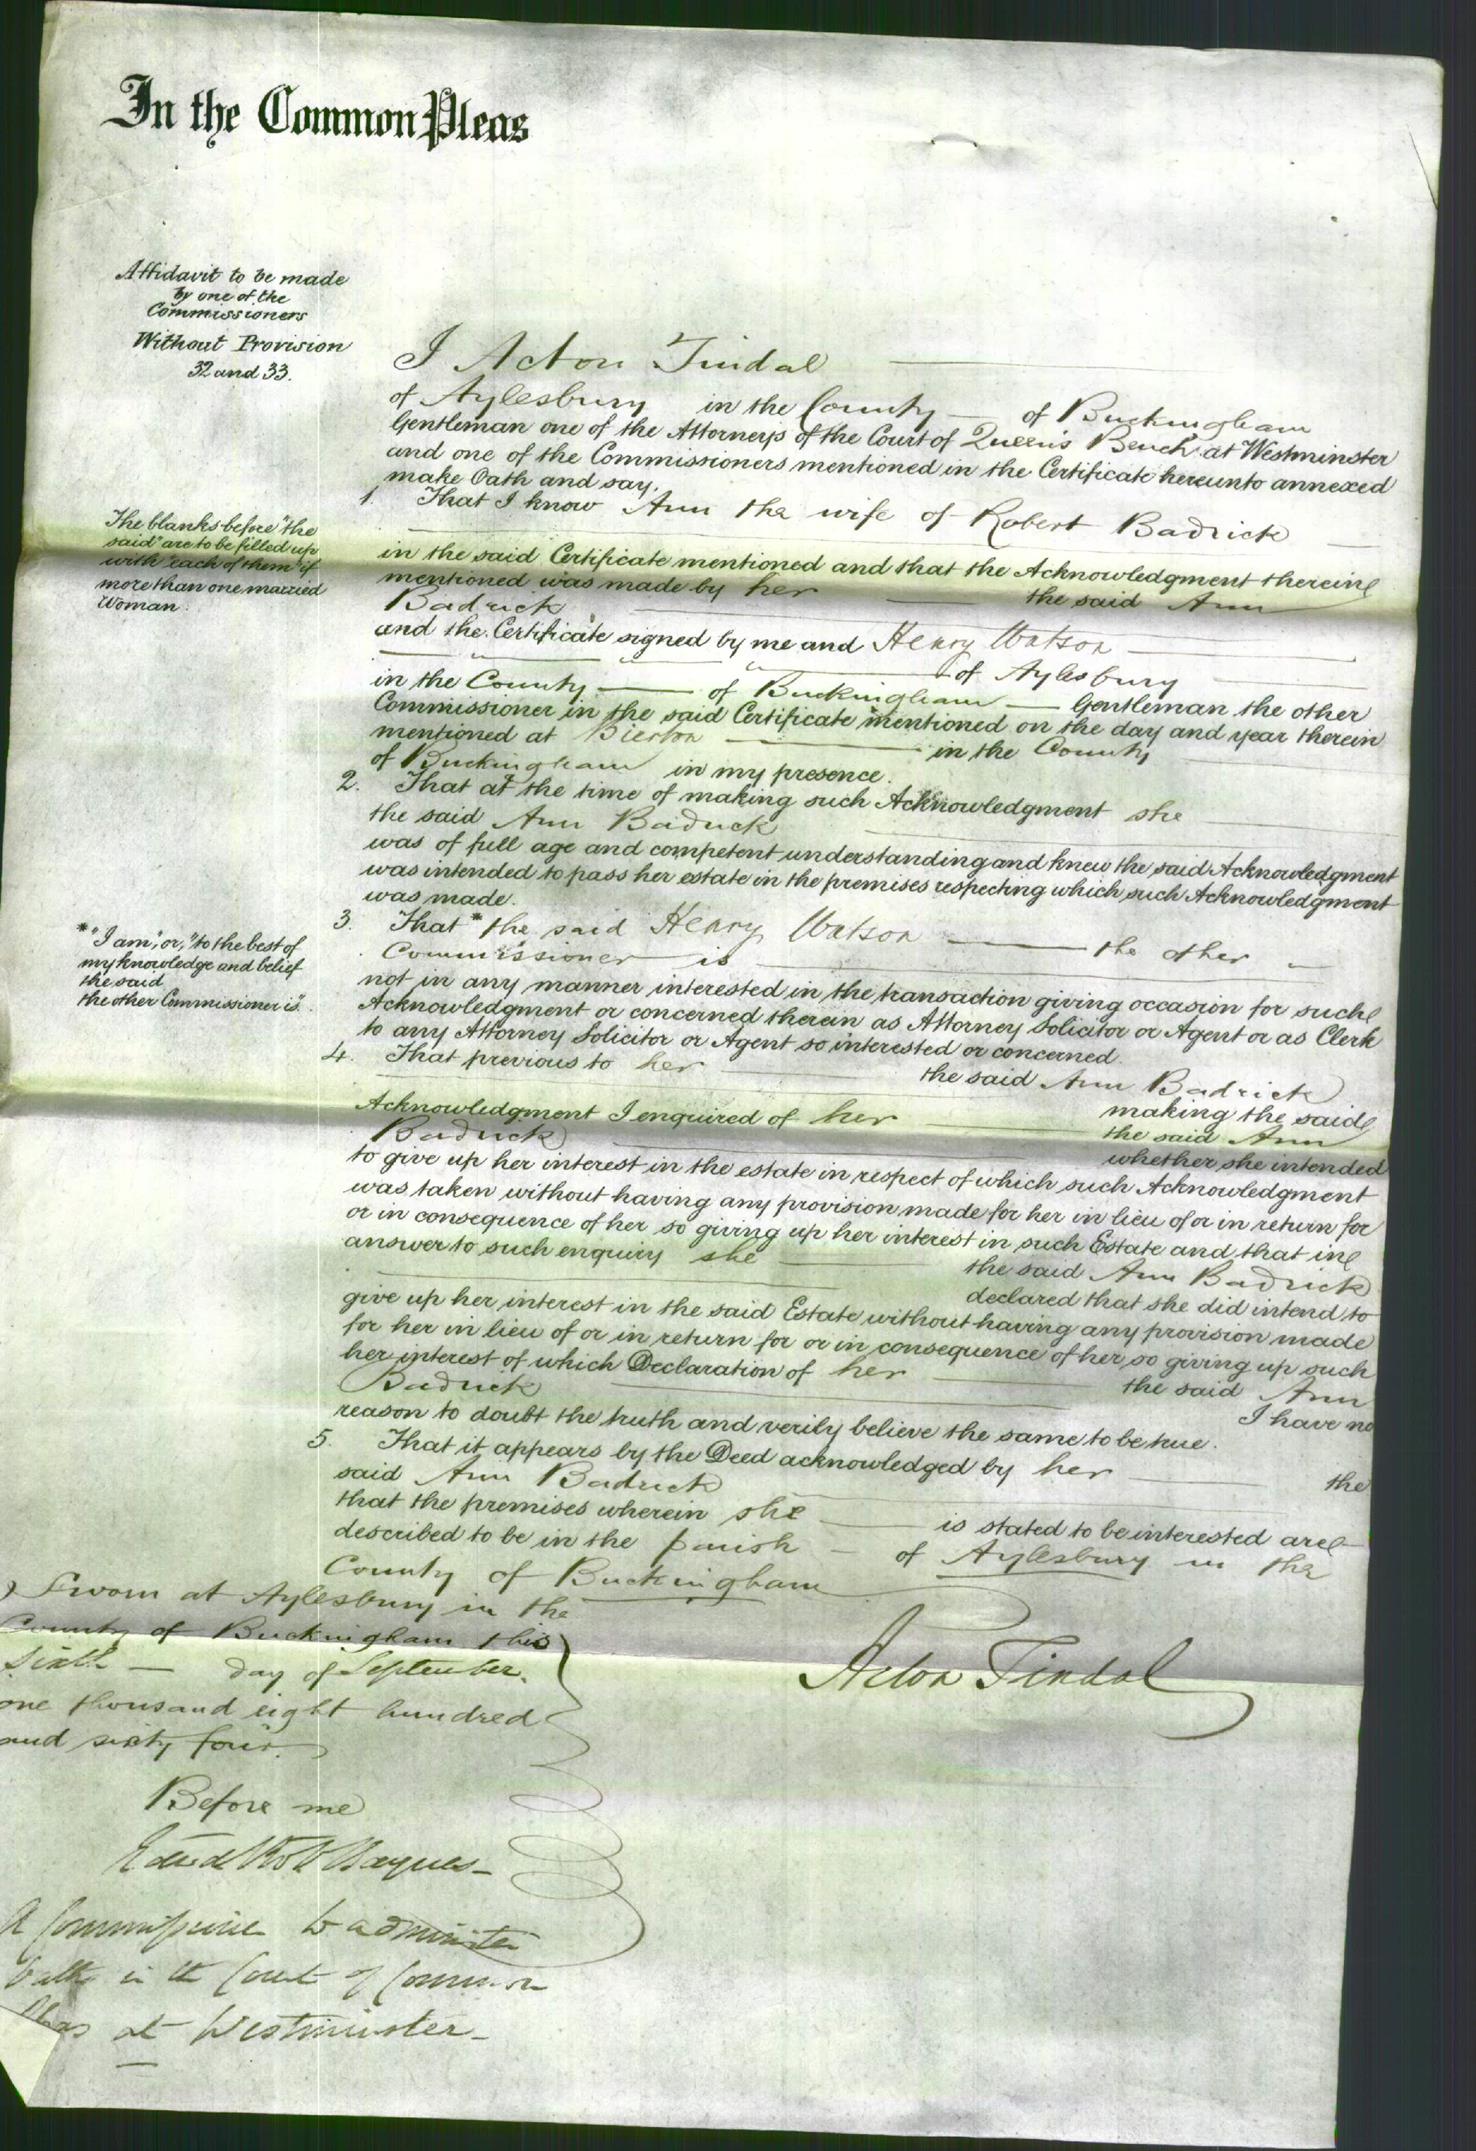 In the Common Pleas
Affidavit to be made
by one of the
Commissioners
Without Provision
32 and 33.
I Acton Tindal
of Aylesbury in the County of Buckingham
Gentleman one of the Attorneys of the Court of Queen's Bench at Westminster
and one of the Commissioners mentioned in the Certificate hereunto annexed
make Oath and say.
1. That I know Ann the wife of Robert Badrick
The blanks before "the
said" are to be filled up
with "each of them" if
more than one married
Woman.
in the said Certificate mentioned and that the Acknowledgment therein
mentioned was made by her the said Ann
Badrick
and the Certificate signed by me and Henry Watson
of Aylesbury
in the County of Buckingham Gentleman the other
Commissioner in the said Certificate mentioned on the day and year therein
mentioned at Bierton in the County
of Buckingham in my presence.
2. That at the time of making such Acknowledgment she
the said Ann Badrick
was of full age and competent understanding and knew the said Acknowledgment
was intended to pass her estate in the premises respecting which such Acknowledgment
was made.
3. That * the said Henry Watson the other
Commissioner is
* "I am", or, "to the best of
my knowledge and belief
the said
the other Commissioner is".
not in any manner interested in the transaction giving occasion for such
Acknowledgment or concerned therein as Attorney Solicitor or Agent or as Clerk
to any Attorney Solicitor or Agent so interested or concerned.
4. That previous to her the said Ann Badrick
making the said
Acknowledgment I enquired of her the said Ann
Badrick whether she intended
to give up her interest in the estate in respect of which such Acknowledgment
was taken without having any provision made for her in lieu of or in return for
or in consequence of her so giving up her interest in such Estate and that in
answer to such enquiry she the said Ann Badrick
declared that she did intend to
give up her interest in the said Estate without having any provision made
for her in lieu of or in return for or in consequence of her so giving up such
her interest of which Declaration of her the said Ann
Badrick I have no
reason to doubt the truth and verily believe the same to be true.
5. That it appears by the Deed acknowledged by her the
said Ann Badrick
that the premises wherein she is stated to be interested are
described to be in the parish of Aylesbury in the
County of Buckingham
Sworn at Aylesbury in the
County of Buckingham this
Sixth day of September
one thousand eight hundred
and sixty four.
Acton Tindal
Before me
A Commissioner to administer
Oaths in the Court of Common
Pleas at Westminster